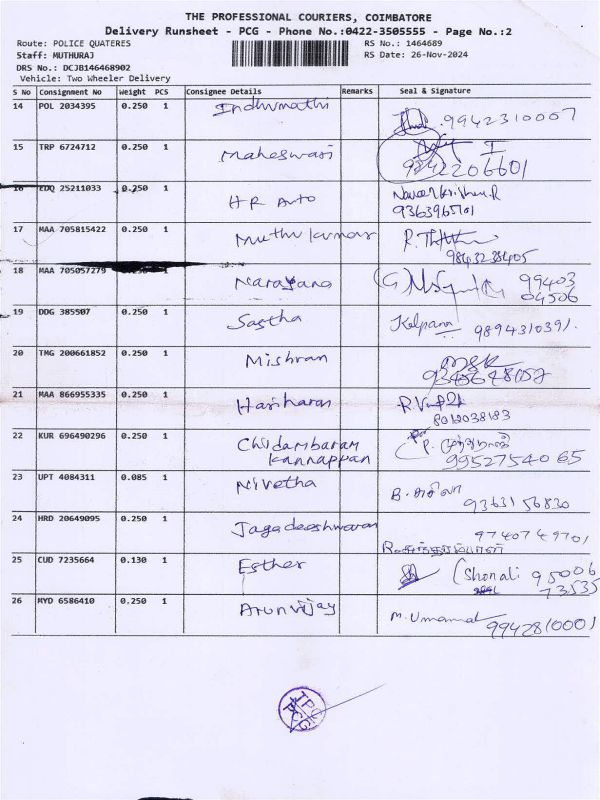 THE PROFESSIONAL COURIERS, COIMBATORE
Delivery Runsheet - PCG - Phone No.:0422-3505555 - Page No.:2
Route: POLICE QUATERES RS No.: 1464689
Staff: MUTHURAJ RS Date: 26-Nov-2024
DRS No.: DCJB146468902
Vehicle: Two Wheeler Delivery
S No Consignment No Weight PCS Consignee Details Remarks Seal & Signature
14 POL 2034395 0.250 1 Indhumathi 9942310007
15 TRP 6724712 0.250 1 Maheswari
9842206601
16 EDQ 25211033 0.250 1 HR Auto Naveen Krishna.R
9363965701
17 MAA 705815422 0.250 1 Muthu kumar
9843238405
18 MAA 705057279 0.250 1 Narayana 99403
04506
19 DDG 385507 0.250 1 Sastha Kalpana 9894310391.
20 TMG 200661852 0.250 1 Mishran
21 MAA 866955335 0.250 1 Hariharan
8012038183
22 KUR 696490296 0.250 1 Chidambaram
Kannappan 9952754065
23 UPT 4084311 0.085 1 Nivetha
9363156830
24 HRD 20649095 0.250 1 Jagadeeshwaran 9740749701
25 CUD 7235664 0.130 1 Esther (Shonali 95006
73535
26 MYD 6586410 0.250 1 Arunvijay
9942810001
TPC
PCG